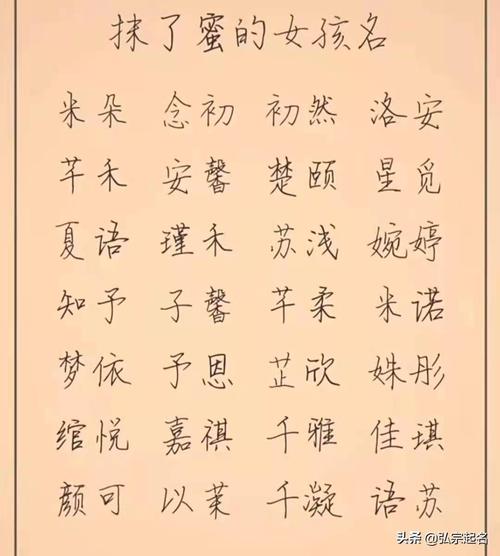 抹了蜜的女孩名
米朵 念初 初然 洛安
芊禾 安馨 楚颐 星觅
夏语 瑾禾 苏浅 婉婷
知予 子馨 芊柔 米诺
梦依 予恩 芷欣 姝彤
绾悦 嘉祺 千雅 佳琪
颜可 以茉 千凝 语苏
头条 @弘宗起名